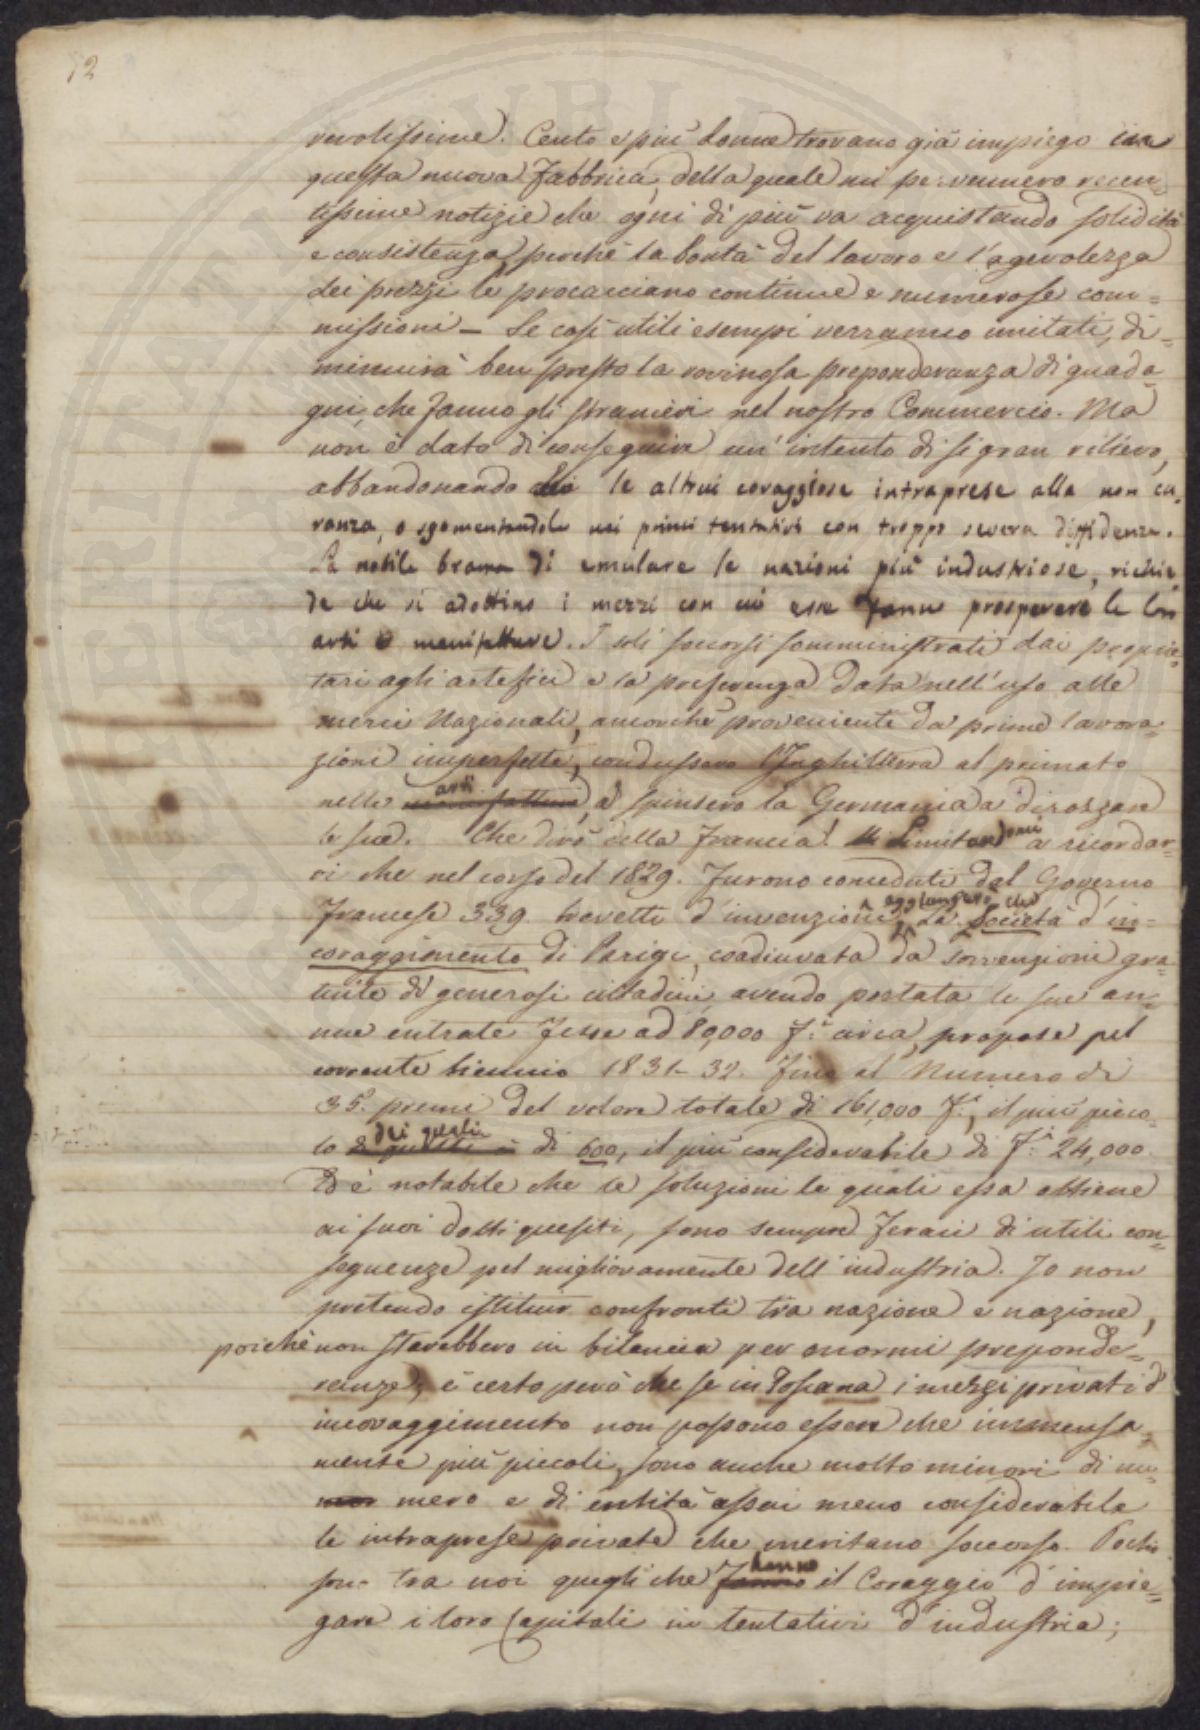 12
revolissime. Cento e più donne trovano già impiego in
questa nuova Fabbrica, della quale mi pervennero recen-
tissime notizie che ogni dì più va acquistando solidità
e consistenza, perchè la bontà del lavoro e l'agevolezza
dei prezzi le procacciano continue e numerose com=
missioni — Se così utili esempi verranno imitati, di=
minuirà ben presto la rovinosa preponderanza di guada
gni, che fanno gli stranieri nel nostro Commercio. Ma
non è dato di conseguire un'intento di sì gran rilievo,
abbandonando le altrui coraggiose intraprese alla non cu-
ranza, o sgomentandole nei primi tentativi con troppo severa diffidenza.
La nobile brama di emulare le nazioni più industriose, richie
de che si adottino i mezzi con cui esse fanno prosperare le loro
arti e manifatture. I soli soccorsi somministrati dai proprie=
tari agli artefici e la preferenza data nell'uso alle
merci Nazionali, ancorchè provenienti da prime lavora-
zioni imperfette, condussero l'Inghilterra al primato
nelle manifatture arti, e spinsero la Germania a dirozzare
le sue. Che dirò della Francia! Mi Limiterò a ricordar=
vi che nel corso del 1829. furono conceduti dal Governo
Francese 339. brevetti d'invenzione, aggiungerò che La Società d'in=
coraggimento di Parigi, coadiuvata da sovvenzioni gra=
tuite di generosi cittadini avendo portata le sue an=
nue entrate fisse ad 80,000 f.i circa, propose pel
corrente biennio 1831-32. fino al Numero di
35. premi del valore totale di 161,000 f.i, il più picco-
lo di questi è dei quali di 600, il più considerabile di f.i 24,000.
Ed è notabile che le soluzioni le quali essa ottiene
ai suoi dotti quesiti, sono sempre feraci di utili con=
seguenze pel miglioramento dell'industria. Io non
pretendo istituir confronti tra nazione e nazione,
poichè non starebbero in bilancia per enormi preponde=
ranze, è certo però che se in Toscana i mezzi privati d'
incoraggimento non possono essere che immensa=
mente più piccoli, sono anche molto minori di nu=
mero e di entità assai meno considerabile
le intraprese private che meritano soccorso. Pochi
son tra noi quegli che fanno hanno il Coraggio d'impie=
gare i loro Capitali in tentativi d'industria;